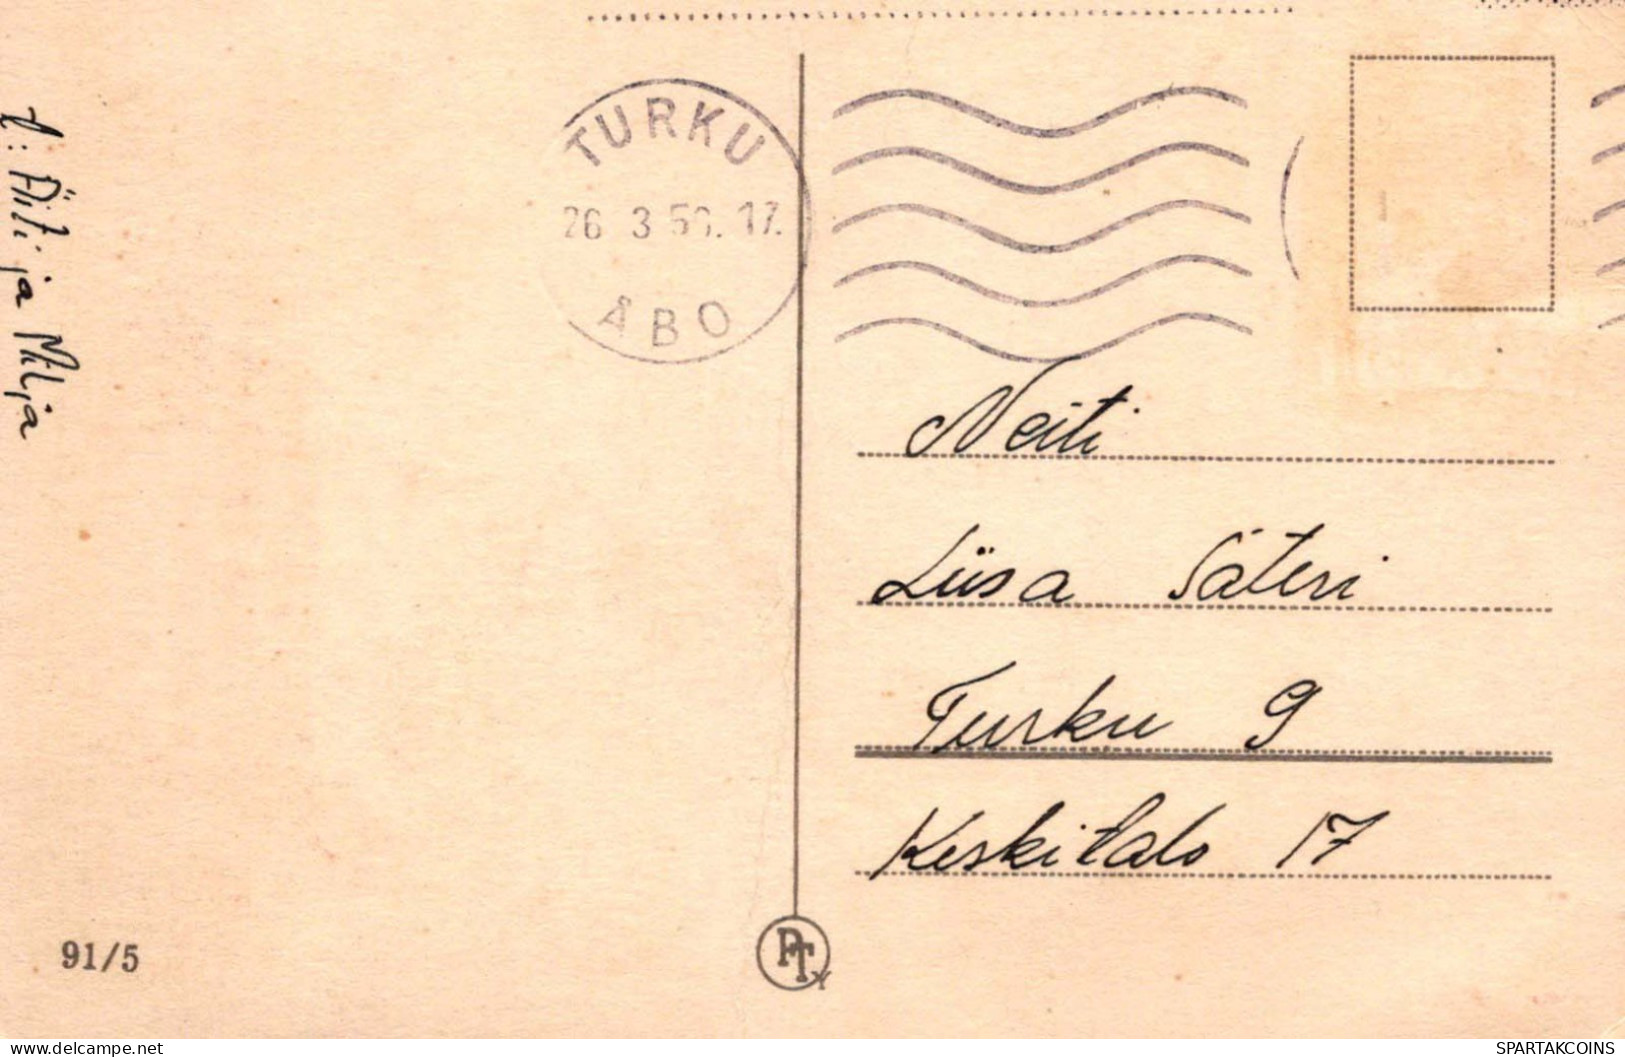 TURKU
26 3 56. 17.
ÅBO
Äiti ja Milja
Neiti
Liisa Säteri
Turku 9
Keskitalo 17
91/5
PTY
www.delcampe.net
SPARTAKCOINS